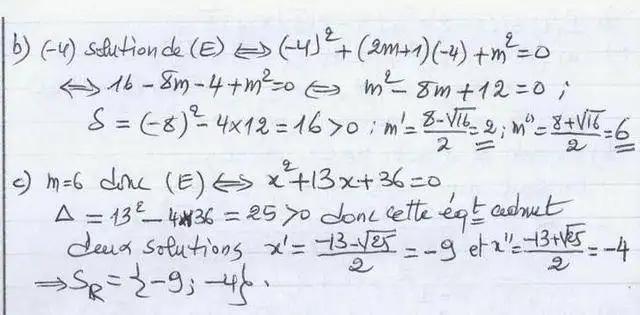 b) (-4) solution de (E) ⟺ (-4)² + (2m+1)(-4) + m² = 0
⟺ 16 - 8m - 4 + m² = 0 ⟺ m² - 8m + 12 = 0 ;
S = (-8)² - 4×12 = 16 > 0 ; m' = (8-√16)/2 = 2 ; m'' = (8+√16)/2 = 6
c) m=6 donc (E) ⟺ x² + 13x + 36 = 0
Δ = 13² - 4×36 = 25 > 0 donc cette éqt admet
deux solutions x' = (-13-√25)/2 = -9 et x'' = (-13+√25)/2 = -4
⟹ S_R = {-9; -4}.